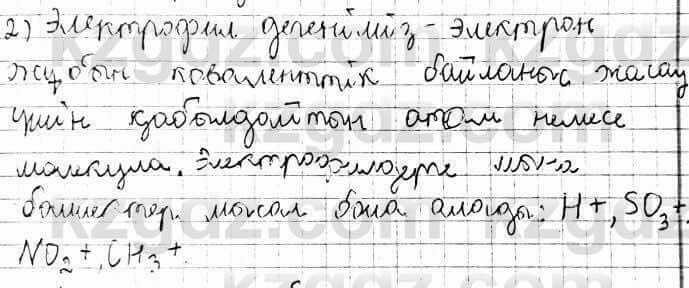 2) Электрофил дегеніміз - электрон
жұбын коваленттік байланыс жасау
үшін қабылдайтын атом немесе
молекула. Электрофилдерге мына
бөлшектер мысал бола алады: H+, SO3+
NO2+, CH3+.